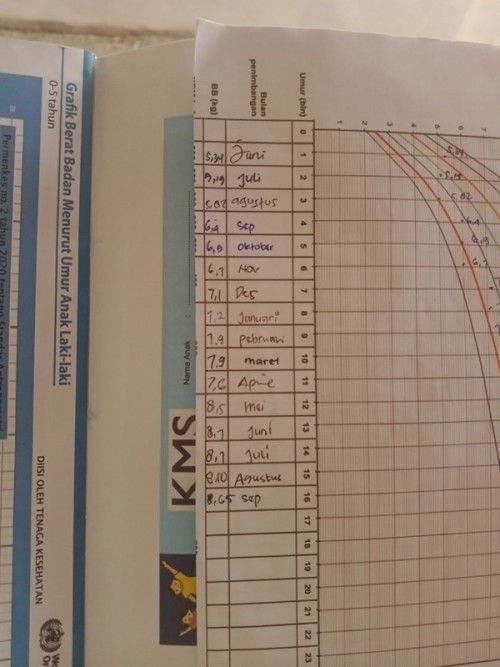 Grafik Berat Badan Menurut Umur Anak Laki-laki
0-5 tahun
Permenkes no. 2 tahun 2020 tentang Standar Antropometri
DIISI OLEH TENAGA KESEHATAN
KMS
Nama Anak
Umur (bln)
Bulan penimbangan
BB (kg)
0
1 Juni 5,34
2 Juli
3 agustus 5,82
4 Sep 6,4
5 oktober 6,9
6 Nov 6,7
7 Des 7,1
8 Januari 7,2
9 pebruari 7,9
10 maret 7,9
11 7,6
12 mei 8,5
13 Juni 8,7
14 Juli 8,7
15 Agustus 8,10
16 Sep 8,65
17
18
19
20
21
22
23
1
2
3
4
5
6
7